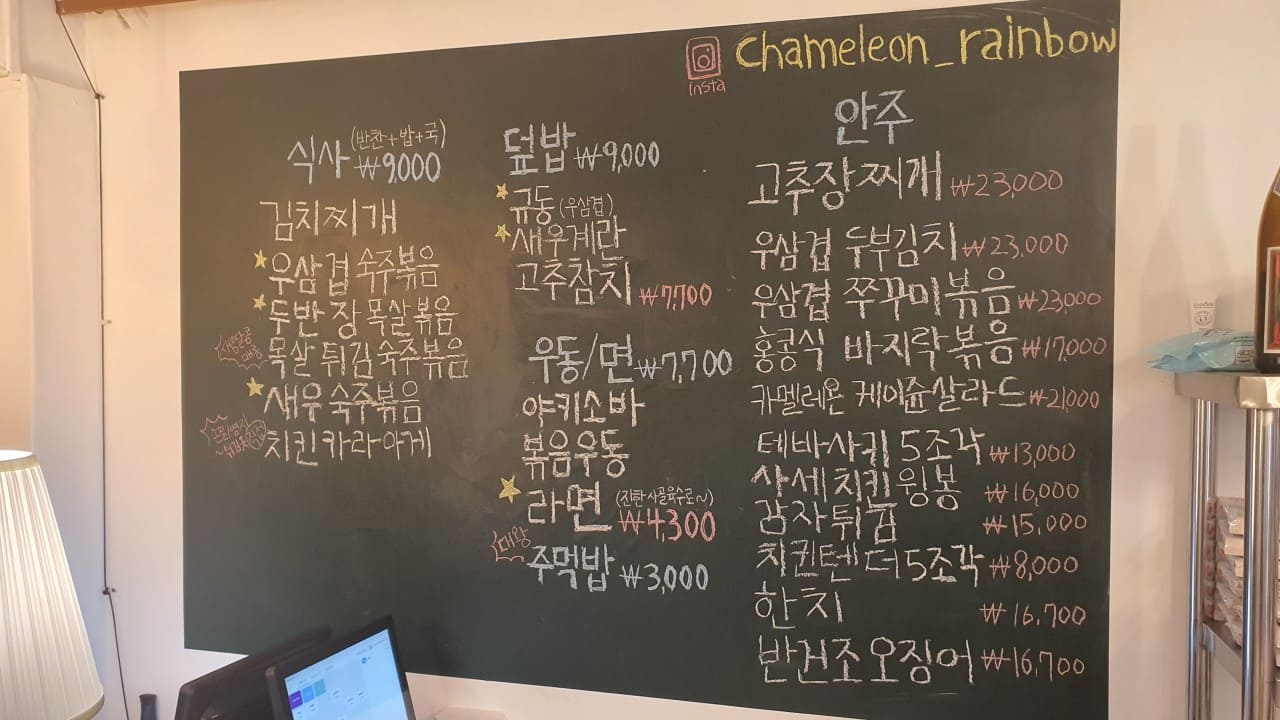 chameleon_rainbow
insta
식사 (반찬+밥+국) ₩9,000
김치찌개
우삼겹 숙주볶음
두반장 목살볶음
새콤달콤 매콤
목살 튀김 숙주볶음
새우 숙주볶음
치킨카라아게
덮밥 ₩9,000
규동 (우삼겹)
새우계란
고추참치 ₩7,700
우동/면 ₩7,700
야키소바
볶음우동
라면 (진한 사골육수로~) ₩4,300
대왕
주먹밥 ₩3,000
안주
고추장찌개 ₩23,000
우삼겹 두부김치 ₩23,000
우삼겹 쭈꾸미볶음 ₩23,000
홍콩식 바지락볶음 ₩17,000
카멜레온 케이준샐라드 ₩21,000
테바사키 5조각 ₩13,000
상세치킨 윙봉 ₩16,000
감자튀김 ₩15,000
치킨텐더 5조각 ₩8,000
한치 ₩16,700
반건조오징어 ₩16,700